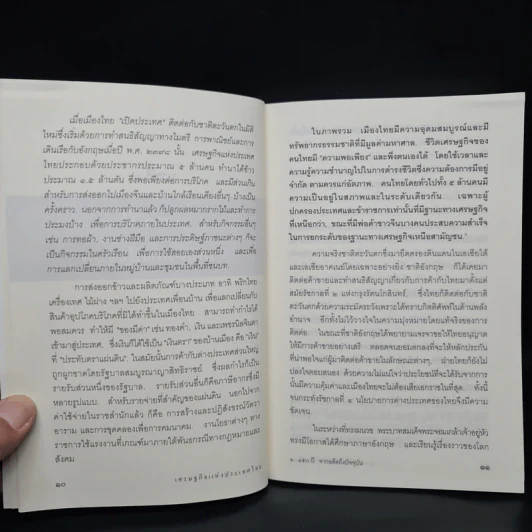 เมื่อเมืองไทย "เปิดประเทศ" ติดต่อกับชาติตะวันตกในมิติ
ใหม่ซึ่งเริ่มด้วยการทำสนธิสัญญาทางไมตรี การพาณิชย์และการ
เดินเรือกับอังกฤษเมื่อปี พ.ศ. ๒๓๙๘ นั้น เศรษฐกิจแห่งประเทศ
ไทยประกอบด้วยประชากรประมาณ ๕ ล้านคน ทำนาได้ข้าว
ประมาณ ๑.๕ ล้านตัน ซึ่งพอเพียงต่อการบริโภค และมีส่วนเกิน
สำหรับการส่งออกไปเมืองจีนและบ้านใกล้เรือนเคียงอื่นๆ บ้างเป็น
ครั้งคราว นอกจากการทำนาแล้ว ก็ปลูกผลหมากรากไม้และทำการ
ประมงบ้าง เพื่อการบริโภคภายในประเทศ สำหรับกิจกรรมอื่นๆ
เช่น การทอผ้า งานช่างฝีมือ และการประดิษฐ์ภาชนะต่างๆ ก็จะ
เป็นกิจกรรมในครัวเรือน เพื่อการใช้สอยเองส่วนหนึ่ง และเพื่อ
การแลกเปลี่ยนภายในหมู่บ้านและชุมชนในพื้นที่ชนบท
การส่งออกข้าวและผลิตภัณฑ์บางประเภท อาทิ พริกไทย
เครื่องเทศ ไม้ฝาง ฯลฯ ไปยังประเทศเพื่อนบ้าน เพื่อแลกเปลี่ยนกับ
สินค้าอุปโภคบริโภคที่มิได้ทำขึ้นในเมืองไทย สามารถทำกำไรได้
พอสมควร ทำให้มี "ของมีค่า" เช่น ทองคำ เงิน และเพชรนิลจินดา
เข้ามาสู่ประเทศ ซึ่งเงินก็ได้ใช้เป็น "เงินตรา" ของบ้านเมือง คือ "เงิน"
ที่ "ประทับตราแผ่นดิน" ในสมัยนั้นการค้ากับต่างประเทศส่วนใหญ่
ถูกผูกขาดโดยรัฐบาลสมบูรณาญาสิทธิราชย์ ซึ่งผลกำไรก็เป็น
รายรับส่วนหนึ่งของรัฐบาล รายรับส่วนอื่นก็คือภาษีอากรซึ่งมี
หลายรูปแบบ สำหรับรายจ่ายที่สำคัญของแผ่นดิน นอกไปจาก
ค่าใช้จ่ายในราชสำนักแล้ว ก็คือ การสร้างและปฏิสังขรณ์วัดวา
อาราม และการขุดคลองเพื่อการคมนาคม งานโยธาต่างๆ ทาง
ราชการใช้แรงงานที่เกณฑ์มาภายใต้พันธกรณีทางกฎหมายและ
สังคม
๑๐
เศรษฐกิจแห่งประเทศไทย
ในภาพรวม เมืองไทยมีความอุดมสมบูรณ์และมี
ทรัพยากรธรรมชาติที่มีมูลค่ามหาศาล ชีวิตเศรษฐกิจของ
คนไทยมี "ความพอเพียง" และพึ่งตนเองได้ โดยใช้เวลาและ
ความรู้ความชำนาญไปในการดำรงชีวิตซึ่งความต้องการมีอยู่
จำกัด ตามควรแก่อัตภาพ คนไทยโดยทั่วไปทั้ง ๕ ล้านคนมี
ความเป็นอยู่ในสภาพและในระดับเดียวกัน เฉพาะผู้
ปกครองประเทศและข้าราชการเท่านั้นที่มีฐานะทางเศรษฐกิจ
ที่เหนือกว่า ขณะที่มีพ่อค้าชาวจีนบางคนประสบความสำเร็จ
ในการยกระดับของฐานะทางเศรษฐกิจเหนือสามัญชน
ความจริงชาติตะวันตกซึ่งมายึดครองดินแดนในเอเชียใต้
และเอเชียอาคเนย์โดยเฉพาะอย่างยิ่ง ชาติอังกฤษ ก็ได้เคยมา
ติดต่อค้าขายและทำสนธิสัญญาเกี่ยวกับการค้ากับไทยมาตั้งแต่
สมัยรัชกาลที่ ๒ แห่งกรุงรัตนโกสินทร์ ซึ่งไทยก็ติดต่อกับชาติ
ตะวันตกด้วยความระมัดระวังเพราะได้ทราบกิตติศัพท์ในด้านพลัง
อำนาจ อีกทั้งไม่ไว้วางใจในความมุ่งหมายโดยแท้จริงของการติด
ต่อ ในขณะที่ชาติอังกฤษได้พยายามเจรจาขอให้ไทยอนุญาต
ให้มีการค้าขายอย่างเสรี ตลอดจนยอมตกลงที่จะให้หลักประกัน
ที่น่าพอใจแก่ผู้มาติดต่อค้าขายในลักษณะต่างๆ ฝ่ายไทยก็ยังไม่
ปลงใจตอบสนอง ด้วยความไม่แน่ใจว่าประโยชน์ที่จะได้รับจากการ
นั้นมีความคุ้มค่าและเมืองไทยจะไม่ต้องเสียเอกราชในที่สุด ทั้งนี้
จนกระทั่งรัชกาลที่ ๔ นโยบายการต่างประเทศของไทยจึงมีความ
ชัดเจน
ในระหว่างที่ทรงผนวช พระบาทสมเด็จพระจอมเกล้าเจ้าอยู่หัว
ทรงมีโอกาสได้ศึกษาภาษาอังกฤษ และเรียนรู้เรื่องราวของโลก
๑ ๑๕๐ ปี จากอดีตถึงปัจจุบัน
๑๑